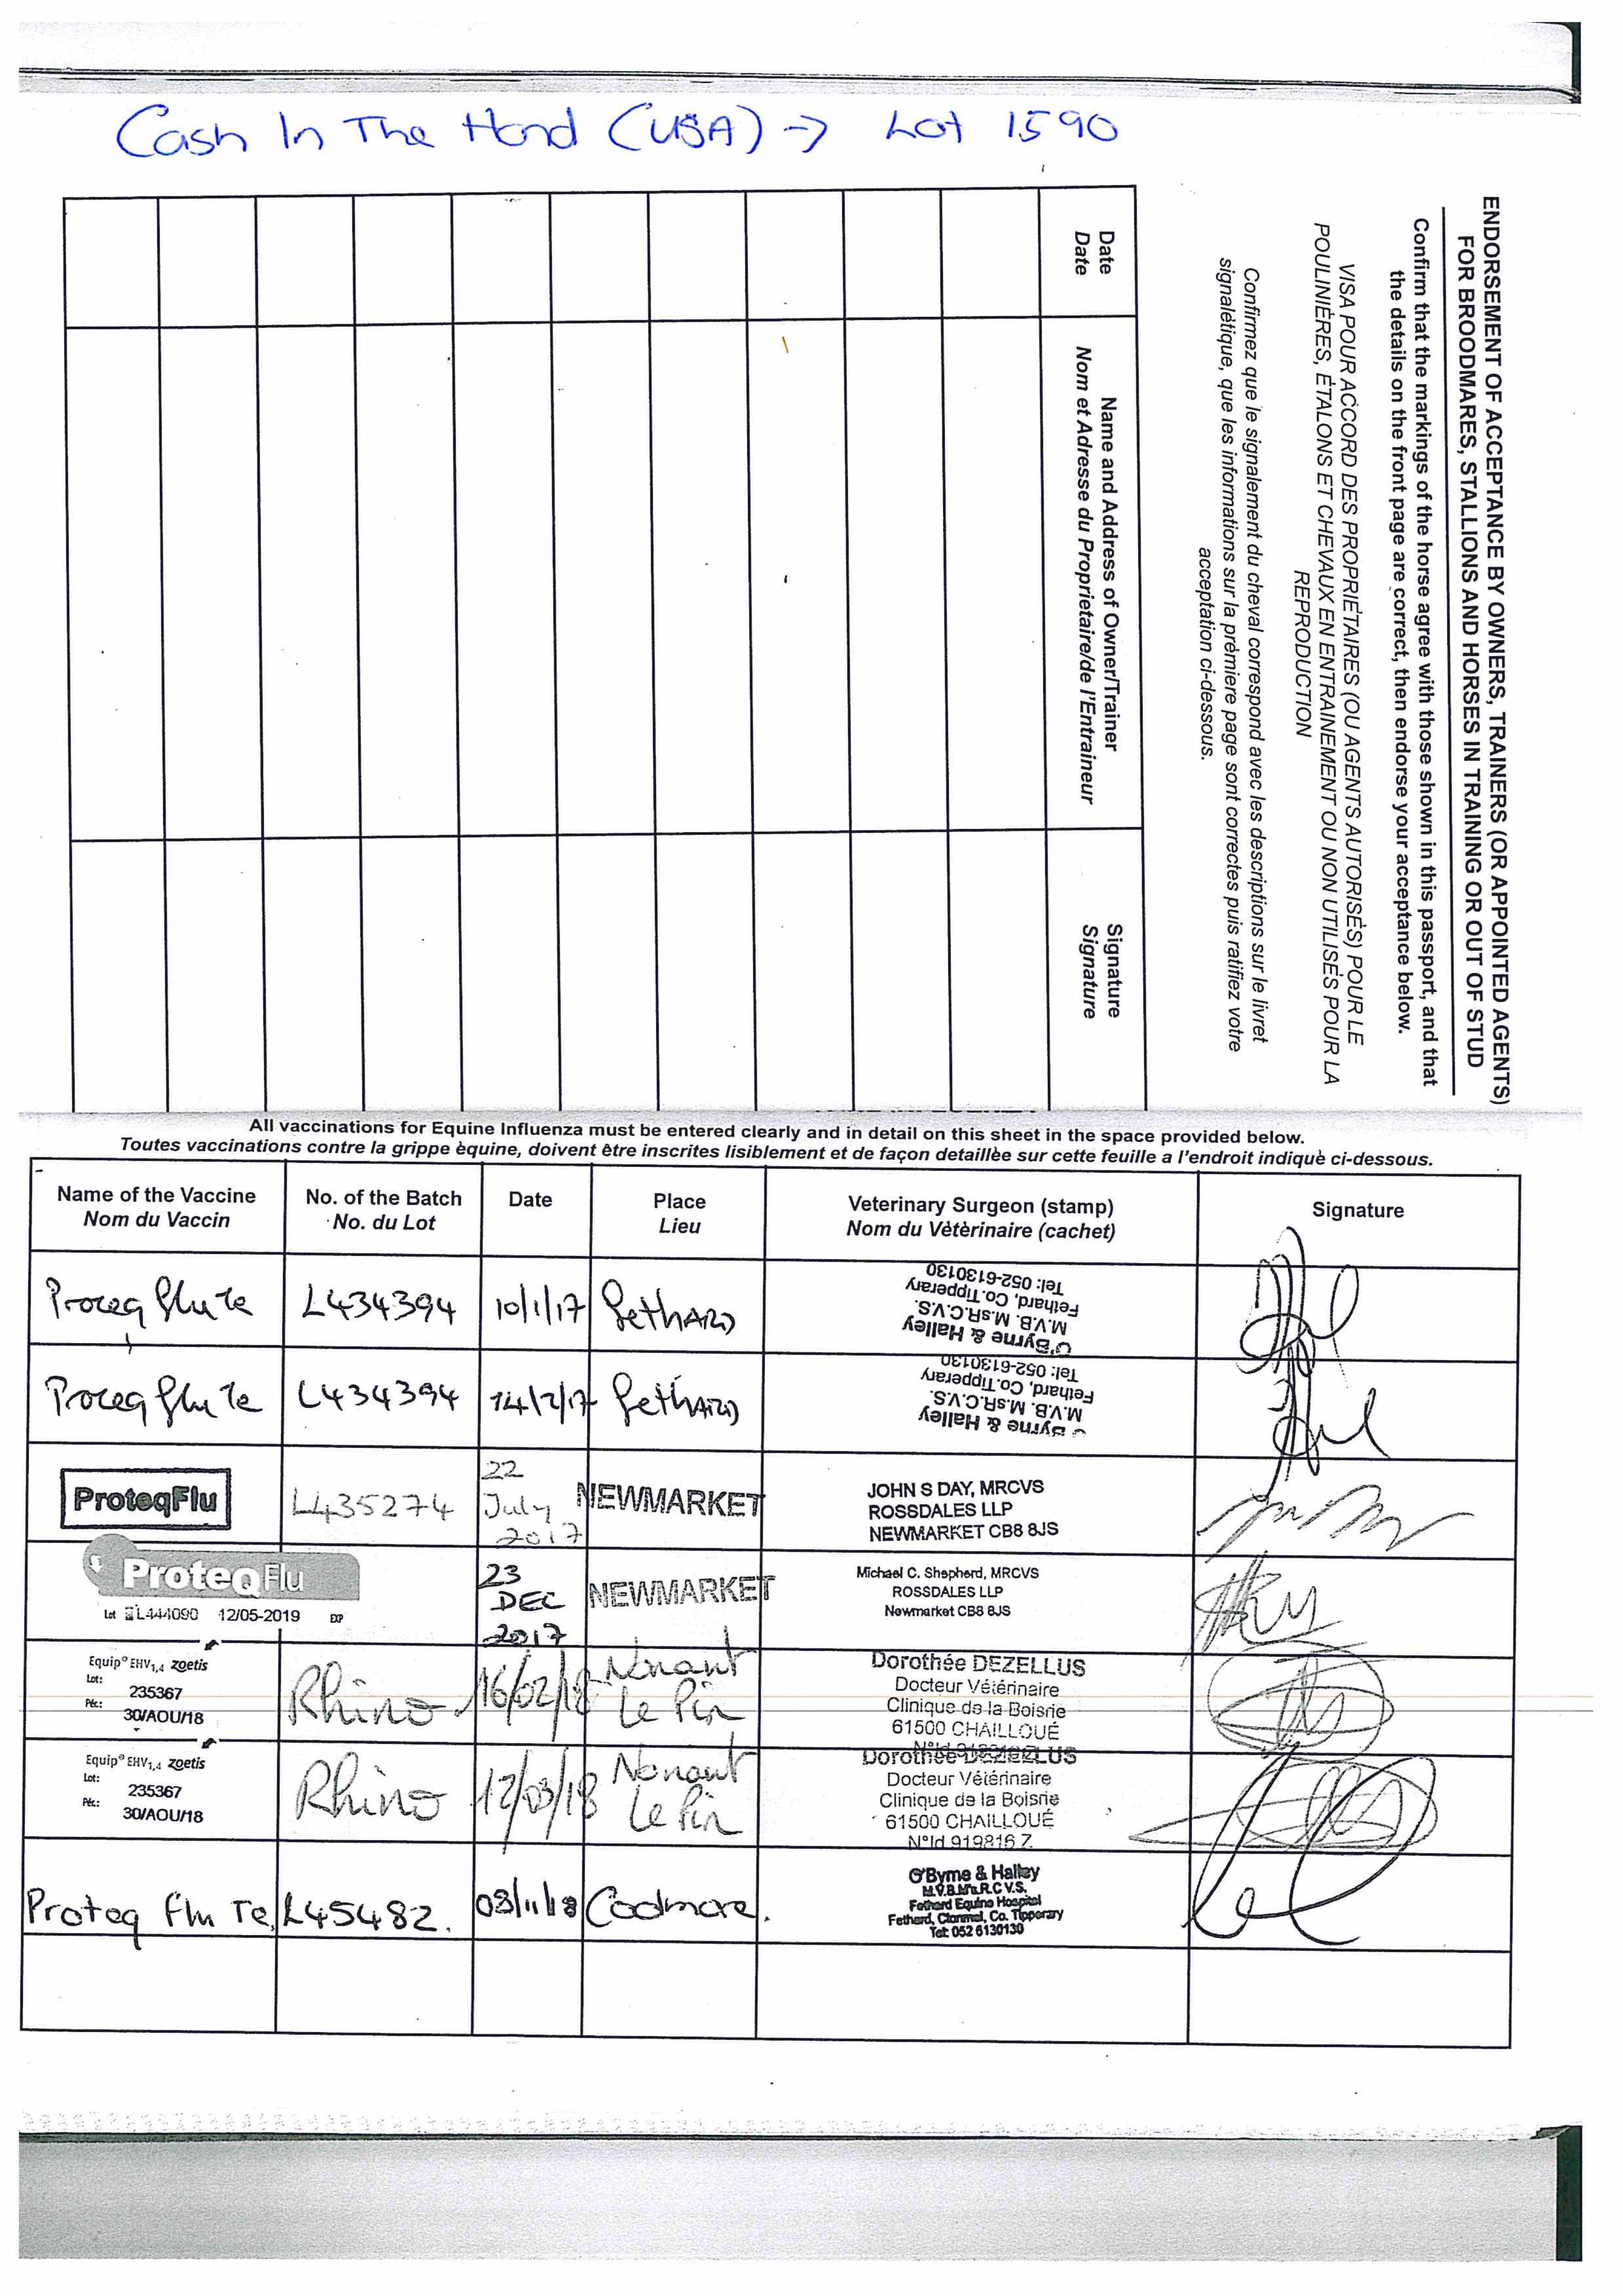 Cash In The Hand (USA) → Lot 1590
ENDORSEMENT OF ACCEPTANCE BY OWNERS, TRAINERS (OR APPOINTED AGENTS)
FOR BROODMARES, STALLIONS AND HORSES IN TRAINING OR OUT OF STUD
Confirm that the markings of the horse agree with those shown in this passport, and that
the details on the front page are correct, then endorse your acceptance below.
VISA POUR ACCORD DES PROPRIÉTAIRES (OU AGENTS AUTORISÉS) POUR LE
POULINIÈRES, ÉTALONS ET CHEVAUX EN ENTRAINEMENT OU NON UTILISÉS POUR LA
REPRODUCTION
Confirmez que le signalement du cheval correspond avec les descriptions sur le livret
signalétique, que les informations sur la prèmiere page sont correctes puis ratifiez votre
acceptation ci-dessous.
Date
Date
Name and Address of Owner/Trainer
Nom et Adresse du Proprietaire/de l'Entraineur
Signature
Signature
All vaccinations for Equine Influenza must be entered clearly and in detail on this sheet in the space provided below.
Toutes vaccinations contre la grippe èquine, doivent être inscrites lisiblement et de façon detaillèe sur cette feuille a l'endroit indiquè ci-dessous.
Name of the Vaccine
Nom du Vaccin
No. of the Batch
No. du Lot
Date
Place
Lieu
Veterinary Surgeon (stamp)
Nom du Vètèrinaire (cachet)
Signature
Proteq flu te L434394 10/1/17 Fethard
O'Byrne & Halley
M.V.B. M.sR.C.V.S.
Fethard, Co.Tipperary
Tel: 052-6130130
Proteq flu te L434394 14/2/17 Fethard
Byrne & Halley
M.V.B. M.sR.C.V.S.
Fethard, Co.Tipperary
Tel: 052-6130130
ProteqFlu L435274 22 July 2017 NEWMARKET
JOHN S DAY, MRCVS
ROSSDALES LLP
NEWMARKET CB8 8JS
ProteqFlu
Lot L444090 12/05-2019 EXP
23 DEC 2017 NEWMARKET
Michael C. Shepherd, MRCVS
ROSSDALES LLP
Newmarket CB8 8JS
Equip® EHV1,4 zoetis
Lot:
235367
Pér.:
30/AOU/18
Rhino 16/02/18 Nonant Le Pin
Dorothée DEZELLUS
Docteur Vétérinaire
Clinique de la Boisrie
61500 CHAILLOUÉ
Equip® EHV1,4 zoetis
Lot:
235367
Pér.:
30/AOU/18
Rhino 12/03/18 Nonant Le Pin
Dorothée DEZELLUS
Docteur Vétérinaire
Clinique de la Boisrie
61500 CHAILLOUÉ
N°Id 919816 Z
Proteq flu Te L45482. 03/11/18 Coolmore.
O'Byrne & Halley
M.V.B M.R.C.V.S.
Fethard Equine Hospital
Fethard, Clonmel, Co. Tipperary
Tel: 052 6130130